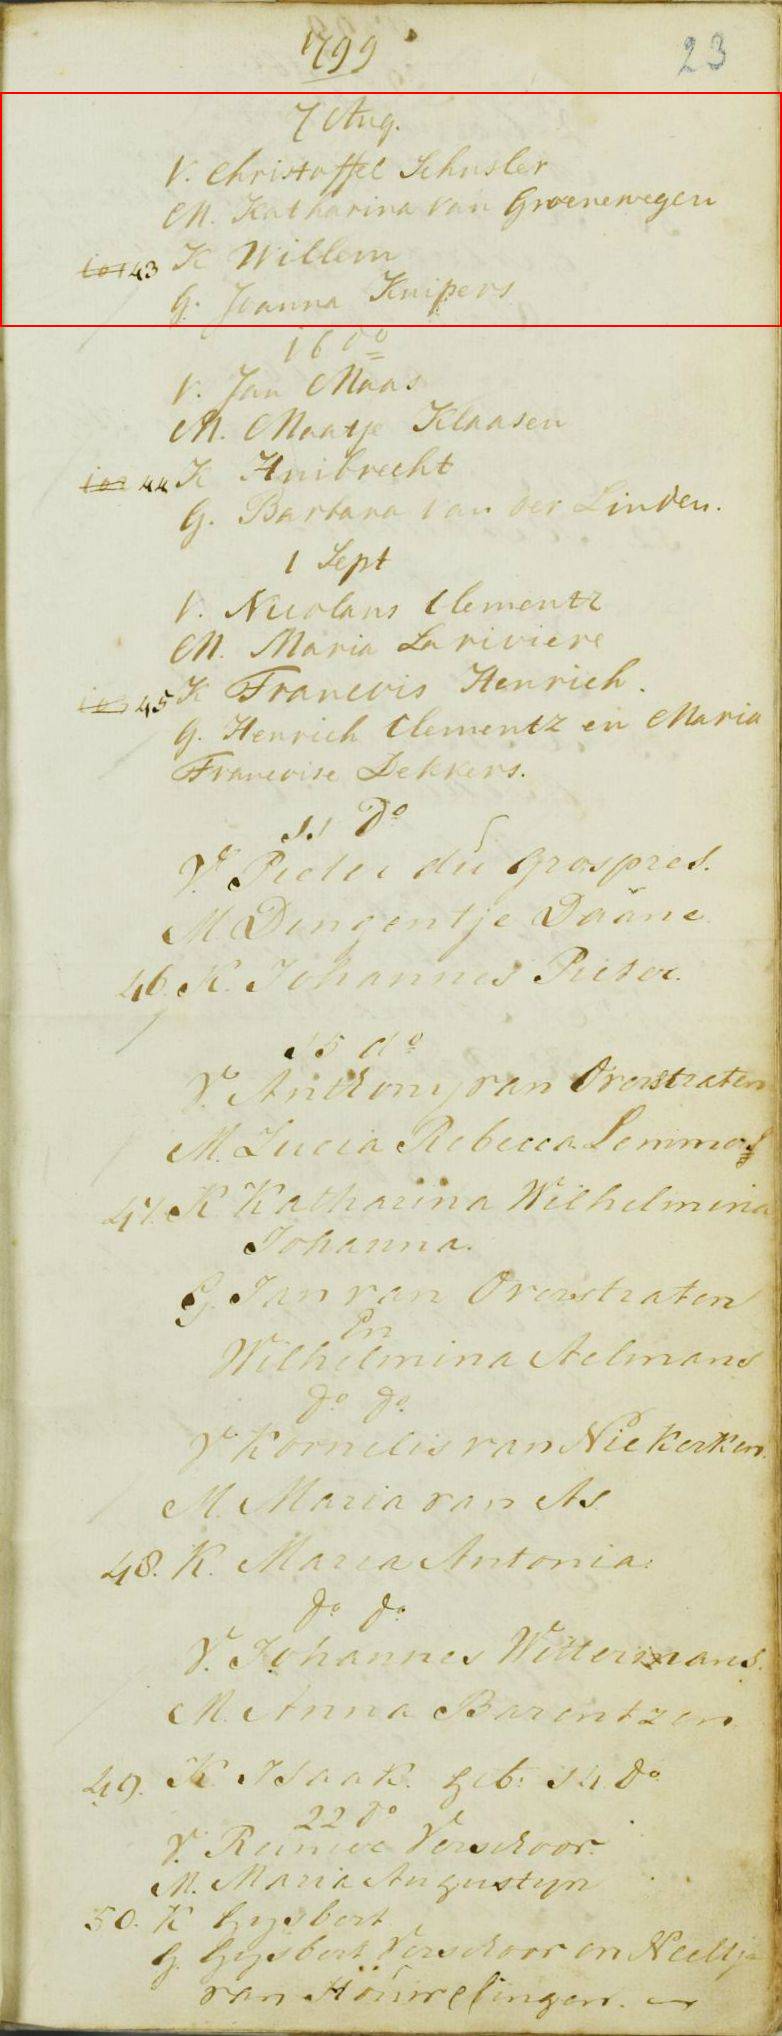 1799
23
7 Aug.
V. Christoffel Schusler
M. Katharina van Groenewegen
43 K Willem
G. Joanna Knipers
16 do
V. Jan Maas
M. Maatje Klaasen
44 K Huibrecht
G. Barbara van der Linden.
1 Sept
V. Nicolaus Clementz
M. Maria Lariviere
45 K Francois Henrich.
G. Henrich Clementz en Maria
Francoise Dekkers.
11 do
V. Pieter du Grospres.
M Dingentje Daane
46. K. Johannes Pieter.
15 do
V. Anthony van Overstraten
M. Lucia Rebecca Lemmers
47. K Katharina Wilhelmina
Johanna.
G. Jan van Overstraten
En
Wilhelmina Aelmans
do do.
V Kornelis van Niekerken.
M. Maria van As
48. K. Maria Antonia.
do do.
V. Johannes Wittermans.
M. Anna Barentzen
49. K. Isaak. geb: 14 do
22 do
V. Verschoor.
M. Maria Augustyn
50. K Gysbert
G. Gysbert Verschoor en Neeltje
van Houwelingen.